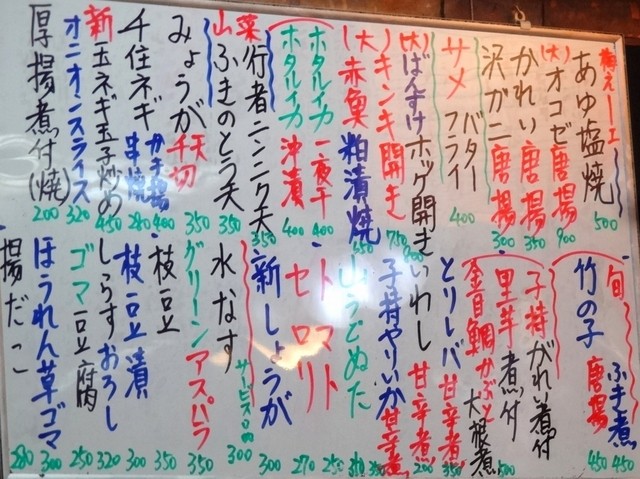 梅えーエ
あゆ塩焼 500
(大)オコゼ唐揚 900
かれい唐揚 350
沢ガニ唐揚 300
サメ バター フライ 400
(大)ばんすけホッケ開き 900
(大)キンキ開き 750
(大)赤魚粕漬焼 650
ホタルイカ一夜干 400
ホタルイカ沖漬 400
山菜
行者ニンニク天 350
ふきのとう天 350
みょうが 天 千切 350
千住ネギ かき揚 400 串焼 280
新玉ネギ玉子炒め 450
オニオンスライス 320
厚揚煮付(焼) 200
旬
ふき煮 450
竹の子 唐揚 450
子持がれい煮付
里芋煮付 500
金目鯛かぶと大根煮
とりレバ甘辛煮 350
いわし甘辛煮 200
子持やりいか甘辛煮 350
山うどぬた 310
トマト 250
セロリ 270
新しょうが 300
水なす サービス品 300
グリーンアスパラ 350
枝豆 350
枝豆漬 300
しらすおろし 320
ゴマ豆腐 250
ほうれん草ゴマ 300
揚だこ 280